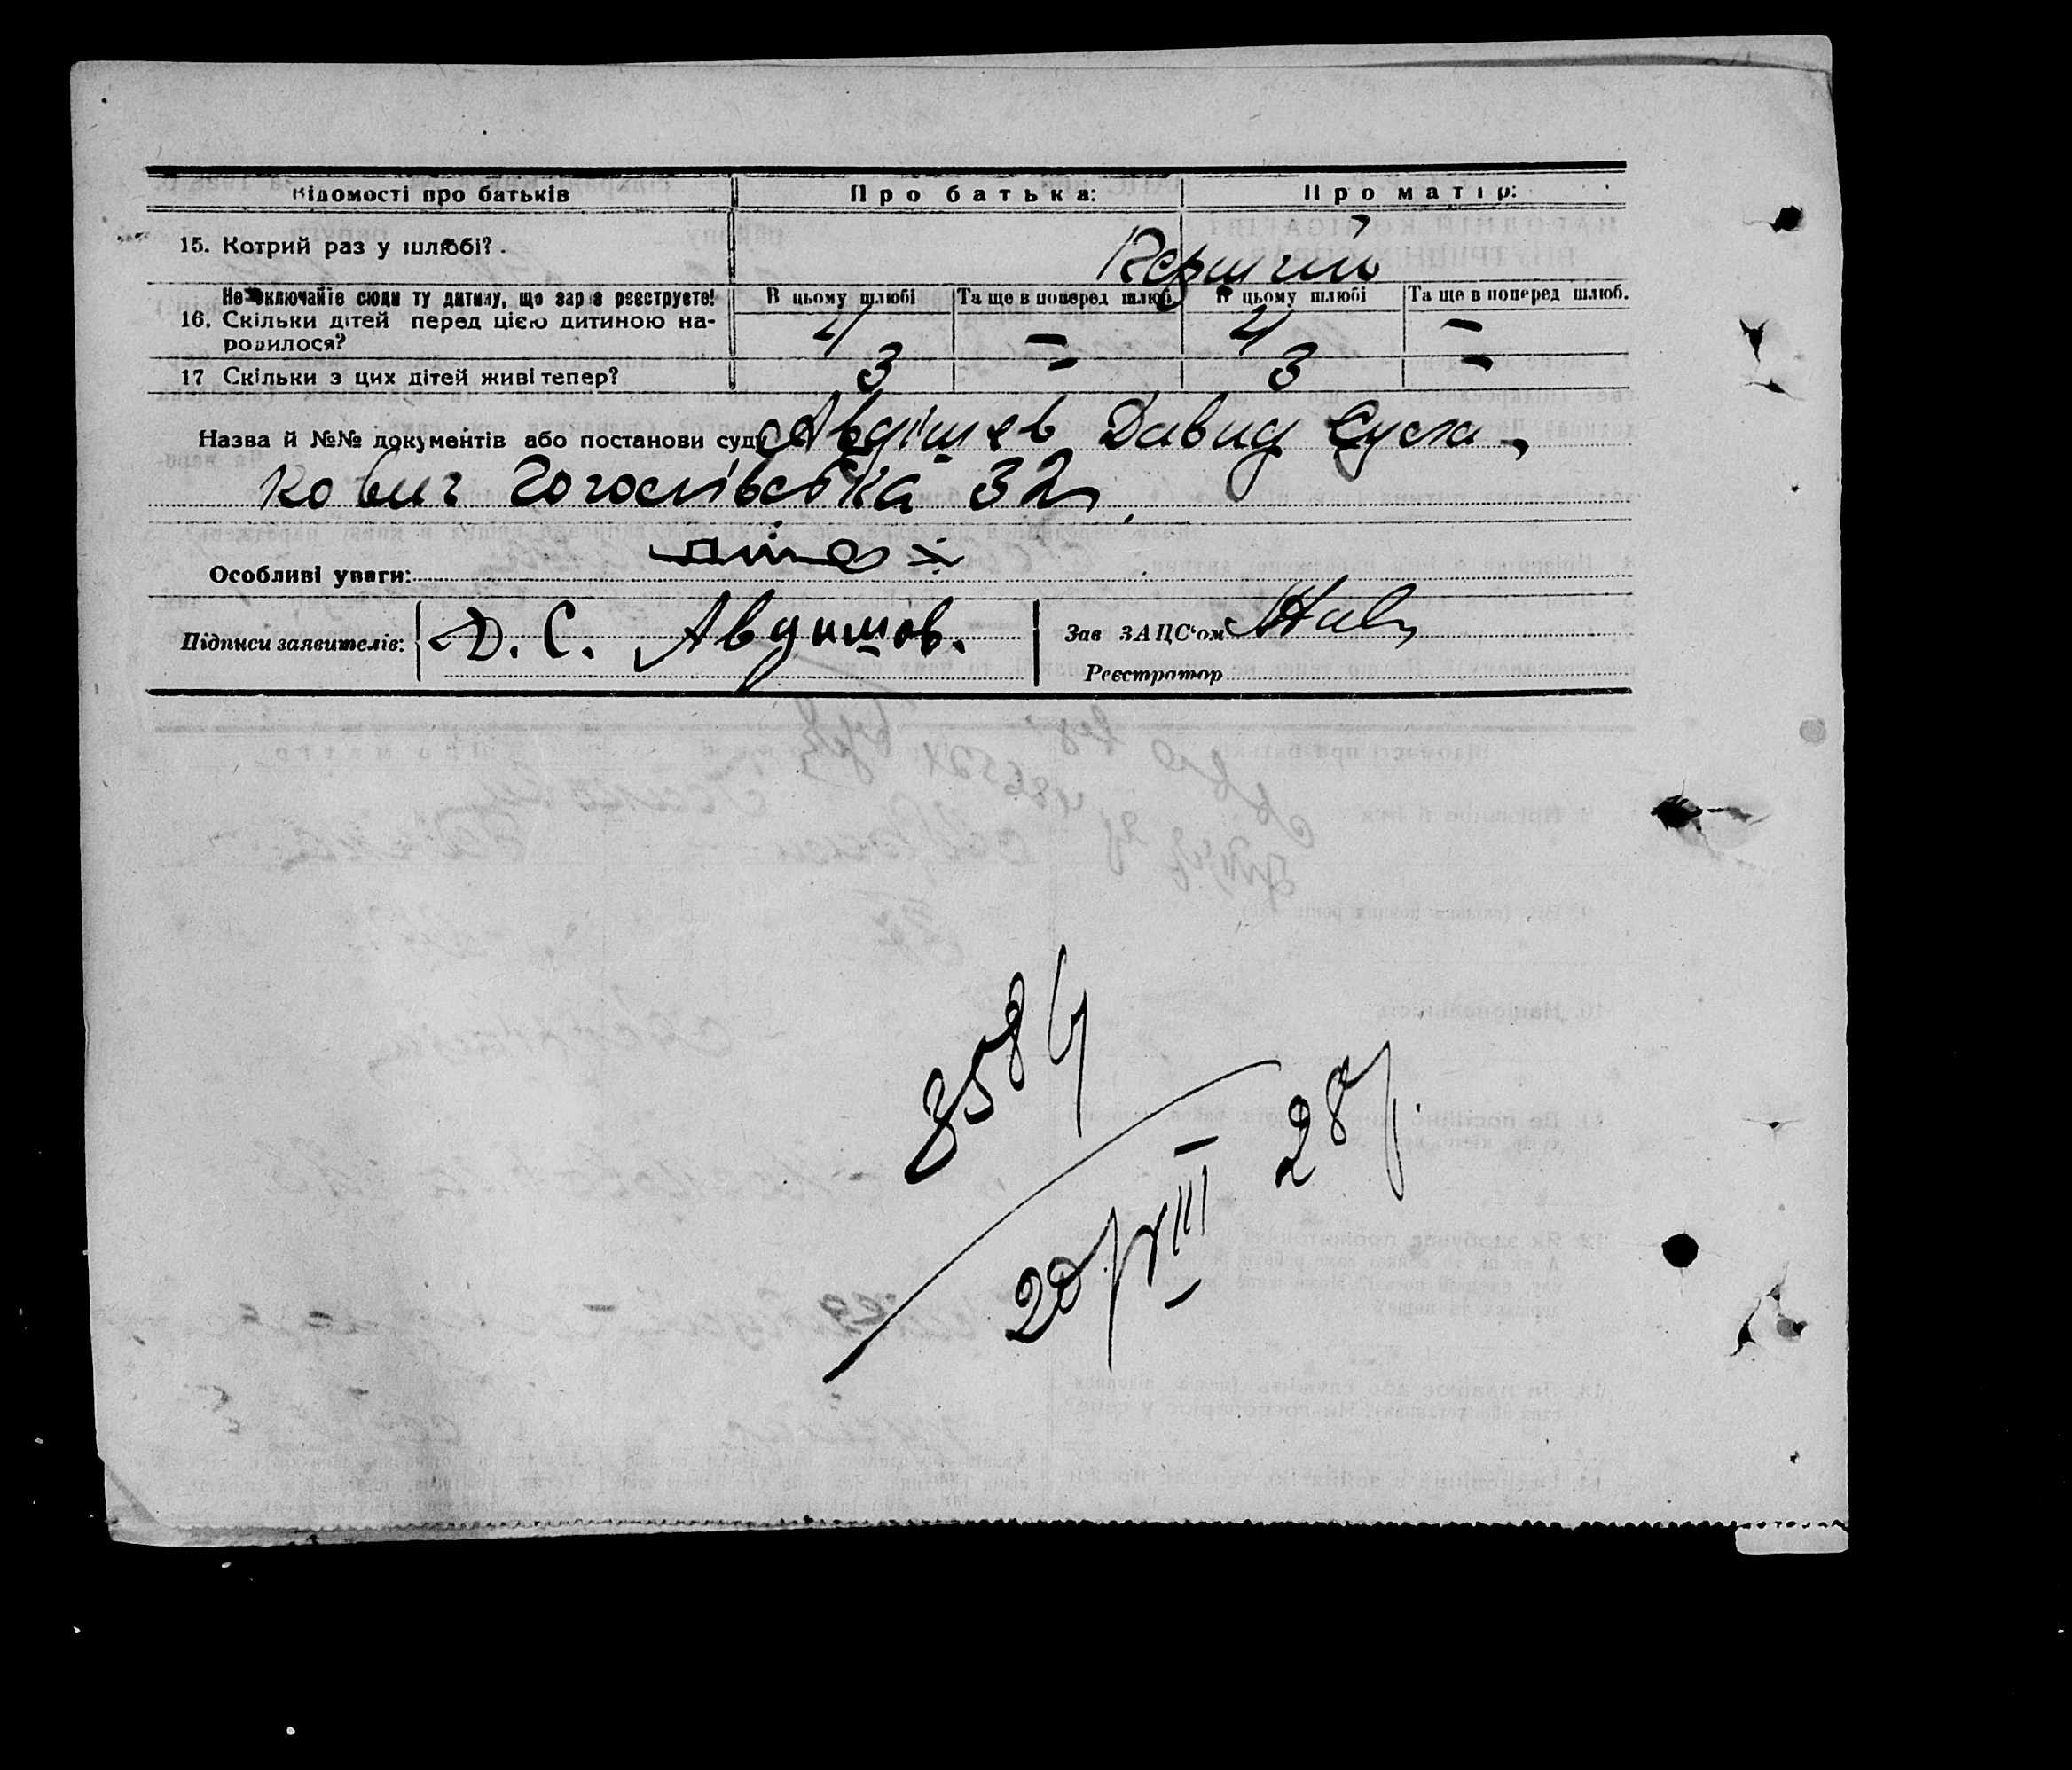 Відомості про батьків Про батька: Про матір:
15. Котрий раз у шлюбі? Перший
Не включайте сюди ту дитину, що зараз реєструєте! В цьому шлюбі Та ще в поперед шлюб. В цьому шлюбі Та ще в поперед шлюб.
16. Скільки дітей перед цією дитиною на- 4 — 4 —
родилося?
17 Скільки з цих дітей живі тепер? 3 — 3 —
Назва й №№ документів або постанови суду Авдішев Давид Суса-
кович Гоголівська 32
Особливі уваги:
Підписи заявителів: Д. С. Авдишов. Зав ЗАЦС'ом
Реєстратор
358
20/VIII 28 р.